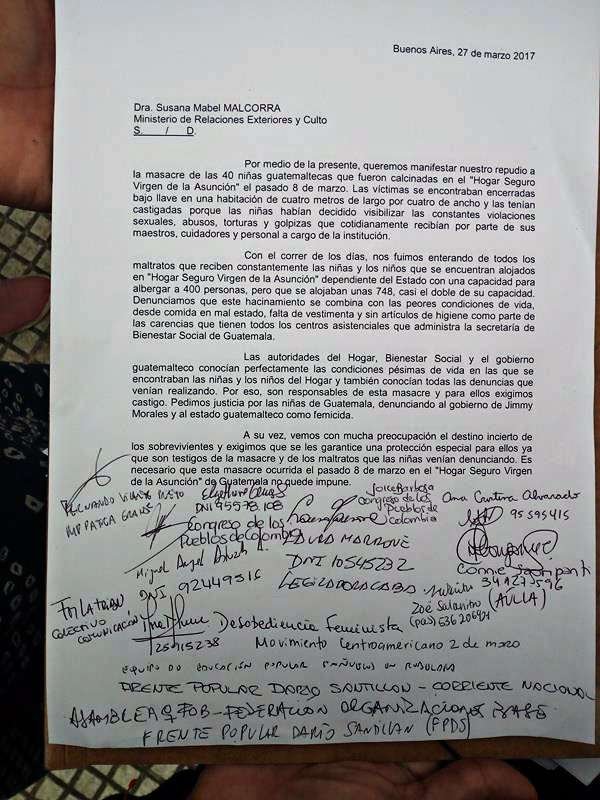 Buenos Aires, 27 de marzo 2017
Dra. Susana Mabel MALCORRA
Ministerio de Relaciones Exteriores y Culto
S. / D.
Por medio de la presente, queremos manifestar nuestro repudio a
la masacre de las 40 niñas guatemaltecas que fueron calcinadas en el "Hogar Seguro
Virgen de la Asunción" el pasado 8 de marzo. Las víctimas se encontraban encerradas
bajo llave en una habitación de cuatro metros de largo por cuatro de ancho y las tenían
castigadas porque las niñas habían decidido visibilizar las constantes violaciones
sexuales, abusos, torturas y golpizas que cotidianamente recibían por parte de sus
maestros, cuidadores y personal a cargo de la institución.
Con el correr de los días, nos fuimos enterando de todos los
maltratos que reciben constantemente las niñas y los niños que se encuentran alojados
en "Hogar Seguro Virgen de la Asunción" dependiente del Estado con una capacidad para
albergar a 400 personas, pero que se alojaban unas 748, casi el doble de su capacidad.
Denunciamos que este hacinamiento se combina con las peores condiciones de vida,
desde comida en mal estado, falta de vestimenta y sin artículos de higiene como parte de
las carencias que tienen todos los centros asistenciales que administra la secretaría de
Bienestar Social de Guatemala.
Las autoridades del Hogar, Bienestar Social y el gobierno
guatemalteco conocían perfectamente las condiciones pésimas de vida en las que se
encontraban las niñas y los niños del Hogar y también conocían todas las denuncias que
venían realizando. Por eso, son responsables de esta masacre y para ellos exigimos
castigo. Pedimos justicia por las niñas de Guatemala, denunciando al gobierno de Jimmy
Morales y al estado guatemalteco como femicida.
A su vez, vemos con mucha preocupación el destino incierto
de los sobrevivientes y exigimos que se les garantice una protección especial para ellos ya
que son testigos de la masacre y de los maltratos que las niñas venían denunciando. Es
necesario que esta masacre ocurrida el pasado 8 de marzo en el "Hogar Seguro Virgen
de la Asunción" de Guatemala no quede impune.
FERNANDO
DNI 95578108
Congreso de los
Pueblos de Colombia
Joice Barbosa
Congreso de los
Pueblos de
Colombia
Ana Cantina Alvarado
95595415
Miguel Angel
DNI 92449316
LAURA MARRONE
DNI 10545232
LEGISLADORA CABA
Connie
349273596
Zoé (AULLA)
(pas) 536206921
COLECTIVO
COMUNICACIÓN
25915238
Desobediencia Feminista
Movimiento Centroamericano 2 de marzo
EQUIPO DE EDUCACIÓN POPULAR PAÑUELOS EN REBELDIA
FRENTE POPULAR DARIO SANTILLAN - CORRIENTE NACIONAL
ASAMBLEA ♀ FOB - FEDERACION ORGANIZACIONES BASE
FRENTE POPULAR DARÍO SANTILLAN (FPDS)